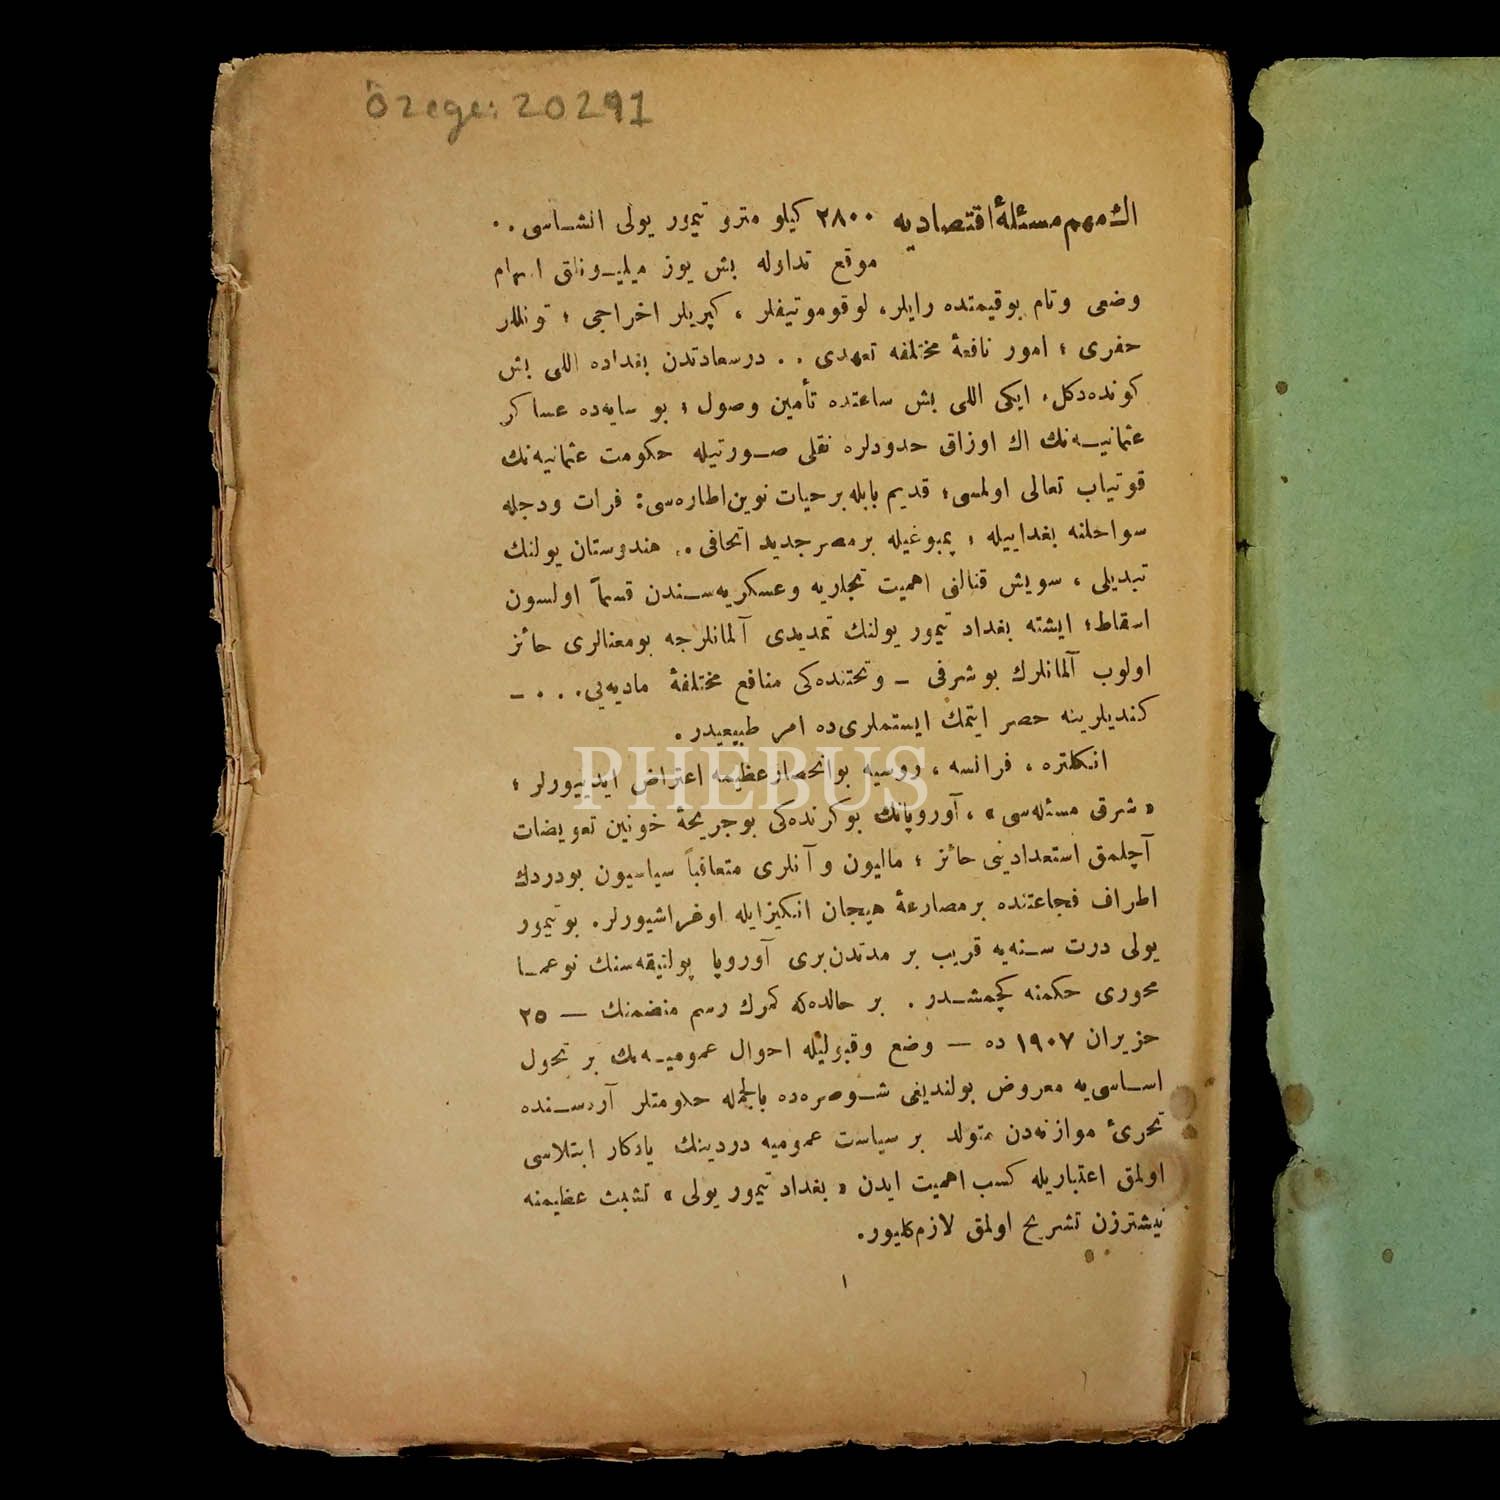 Özege: 20291
اك مهم مسئلهٔ اقتصاديه ٢٨٠٠ كيلو مترو تيمور يولى انشاسى . .
موقع تداوله بش يوز ميليونلق اسهام
وضعى وتام بوقيمتده رايلر، لوقوموتيفلر ، كپريلر اخراجى ؛ تونللر
حفرى ؛ امور نافعهٔ مختلفه تعهدى . . درسعادتدن بغداده اللى بش
كونده دكل، ايكى اللى بش ساعتده تأمين وصول ؛ بو سايه‌ده عساكر
عثمانيه‌نك اك اوزاق حدودلره نقلى صورتيله حكومت عثمانيه‌نك
قوتياب تعالى اولمسى؛ قديم بابله برحيات نوين اطاره‌سى: فرات ودجله
سواحلنه بغداييله ؛ پمبوغيله برمصر جديد اتحافى . . هندوستان يولنك
تبديلى ، سويش قنالنى اهميت تجاريه وعسكريه‌سندن قسماً اولسون
اسقاط؛ ايشته بغداد تيمور يولنك تمديدى آلمانلرجه بومعنالرى حائز
اولوب آلمانلرك بوشرفى ــ وتحتنده‌كى منافع مختلفهٔ ماديه‌يى. . . ــ
كنديلرينه حصر ايتمك ايستملرى‌ده امر طبيعيدر .
انكلتره ، فرانسه ، روسيه بوانحصار عظيمه اعتراض ايدييورلر ؛
« شرق مسئله‌سى » ، آوروپانك بوكرنده‌كى بوجريحهٔ خونين تعويضات
آچلمق استعدادينى حائز ؛ ماليون و آنلرى متعاقباً سياسيون بودردك
اطراف فجاعتنده برمصارعهٔ هيجان انكيزايله اوغراشيورلر. بوتيمور
يولى درت سنه‌يه قريب بر مدتدن‌برى آوروپا پولتيقه‌سنك نوعما
محورى حكمنه كچمشدر . بر حالده‌كه كمرك رسم منضمنك — ٢٥
حزيران ١٩٠٧ ده — وضع وقبوليله احوال عموميه‌نك بر تحول
اساسى‌يه معروض بولنديغى شوصره‌ده بالجمله حكومتلر آره‌سنده
تحرئ موازنه‌دن متولد بر سياست عموميه دردينك يادكار ابتلاسى
اولمق اعتباريله كسب اهميت ايدن « بغداد تيمور يولى » تشبث عظيمنه
نيشترزن تشريح اولمق لازم كليور.
١
PHEBUS